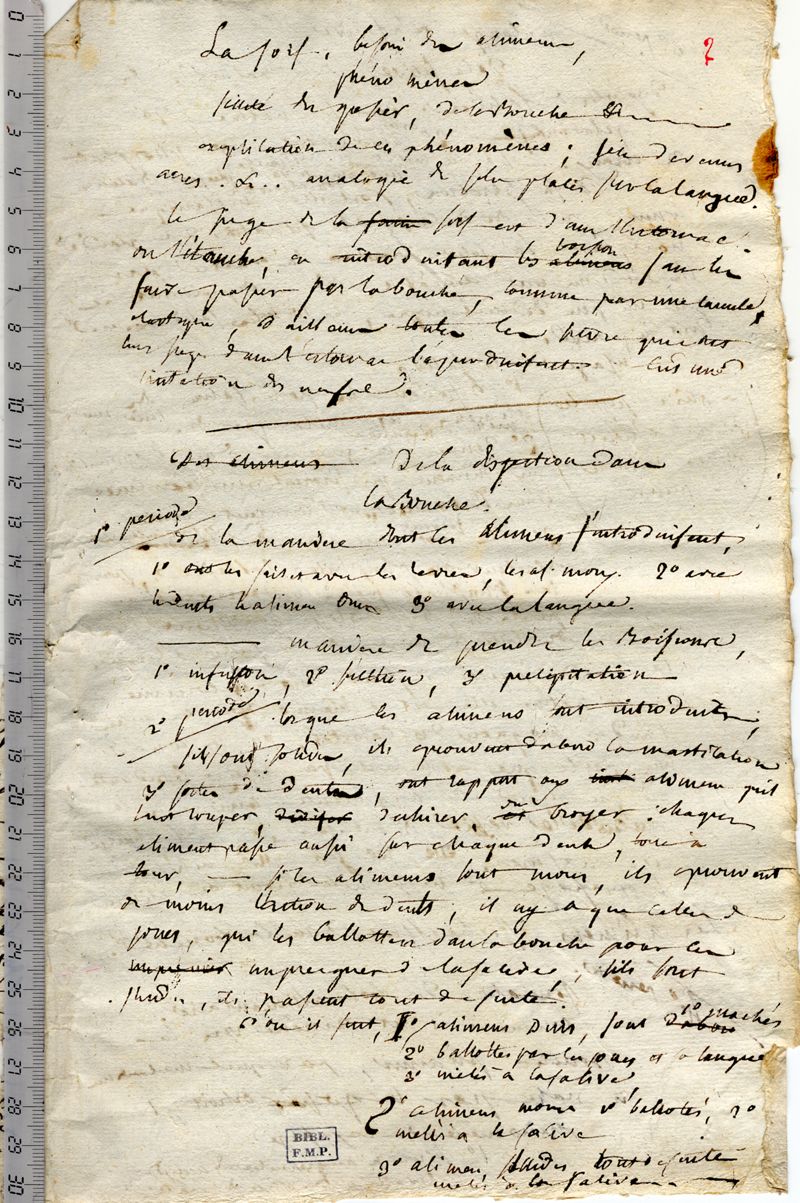 La soif, besoin des alimens,
2
phénomènes
siccité du gosier, de la Bouche &
explication de ces phénomènes; sels devenus
acres. &.. analogie de sels placés sur la langue.
le siege de la faim soif est dans l'estomac.
on l'étanche en introduisant les alimens boisson sans les
faire passer par la bouche, comme par une canule
d'ailleurs toutes les fievres qui ont
leur siege dans l'estomac la produisent. C'est une
irritation des nerfs.
Des alimens De la digestion dans
la Bouche.
1e periode
de la maniere dont les alimens s'introduisent,
1o on les saisit avec les levres, 2o avec
les dents 3o avec la langue.
maniere de prendre les Boissons,
1o infusion, 2o succion, 3o precipitation
2e periode lorsque les alimens sont introduits,
s'ils sont solides, ils eprouvent d'abord la mastication
3 sortes de dents, ont rapport aux alimens qu'il
faut couper diviser dechirer et ou broyer: chaque
aliment passe aussi sur chaque dent, tour à
tour, — si les alimens sont mous, ils eprouvent
de moins l'action des dents, il n'y a que celle des
joues, qui les ballottent dans la bouche pour les
impregner de la salive, s'ils sont
fluides, ils passent tout de suite.
D'où il suit, 1o alimens Durs, sont d'abord 1o machés
2o ballottés par les joues et la langue
3o melés à la salive
2o alimens mous 1o ballotés, 2o
melés à la salive
3o alimens fluides tout de suite
melés à la salive
BIBL.
F.M.P.
0 1 2 3 4 5 6 7 8 9 10 11 12 13 14 15 16 17 18 19 20 21 22 23 24 25 26 27 28 29 30